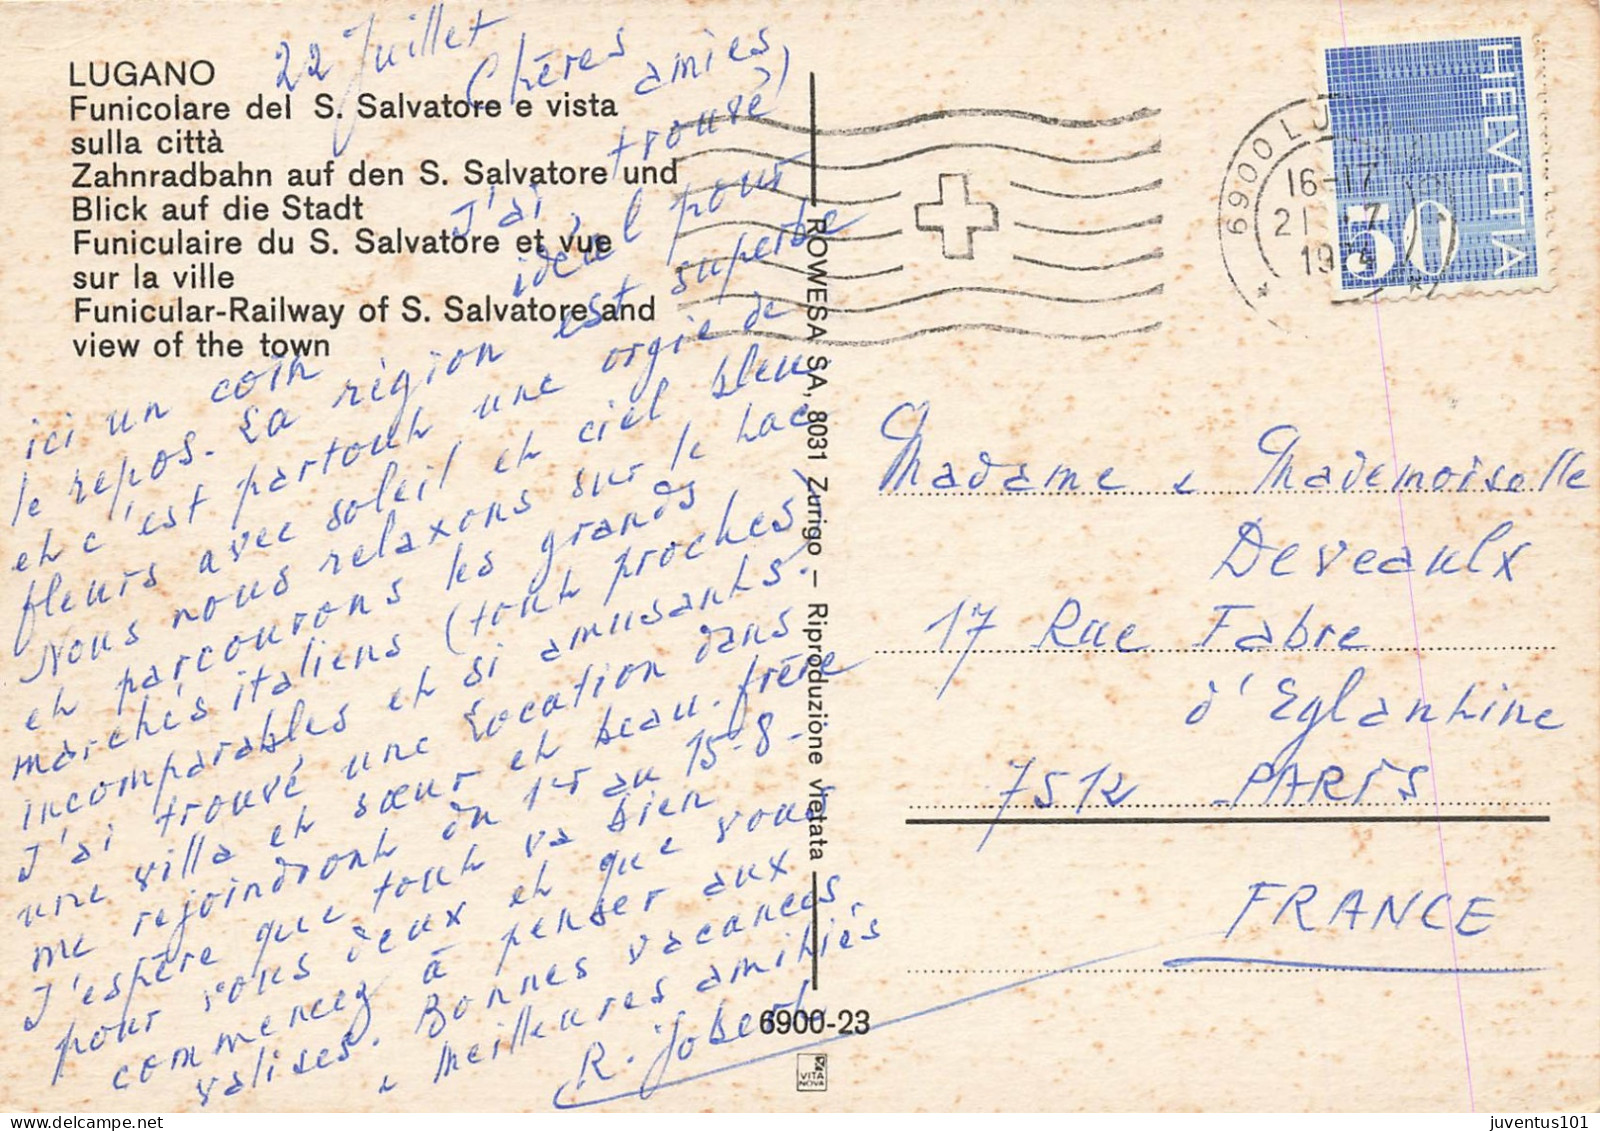 LUGANO
Funicolare del S. Salvatore e vista
sulla città
Zahnradbahn auf den S. Salvatore und
Blick auf die Stadt
Funiculaire du S. Salvatore et vue
sur la ville
Funicular-Railway of S. Salvatore and
view of the town
22 Juillet
Chères amies,
J'ai trouvé,
idéal pour
ici un coin
le repos. La région est superbe
et c'est partout une orgie de
fleurs avec soleil et ciel bleu
Nous nous relaxons sur le lac
et parcourons les grands
marchés italiens (tout proches)
incomparables et si amusants.
J'ai trouvé une location dans
une villa et sœur et beau-frère
me rejoindront du 1er au 15-8-
J'espère que tout va bien
pour vous deux et que vous
commencez à penser aux
valises. Bonnes vacances
& meilleures amitiés
R. Jobert
ROWESA SA, 8031 Zurigo – Riproduzione vietata
6900-23
VITA
NOVA
6900 LU
16-17
21 7
1974
HELVETIA
50
Madame & Mademoiselle
Deveaulx
17 Rue Fabre
d'Eglantine
7512 PARIS
FRANCE
juventus101